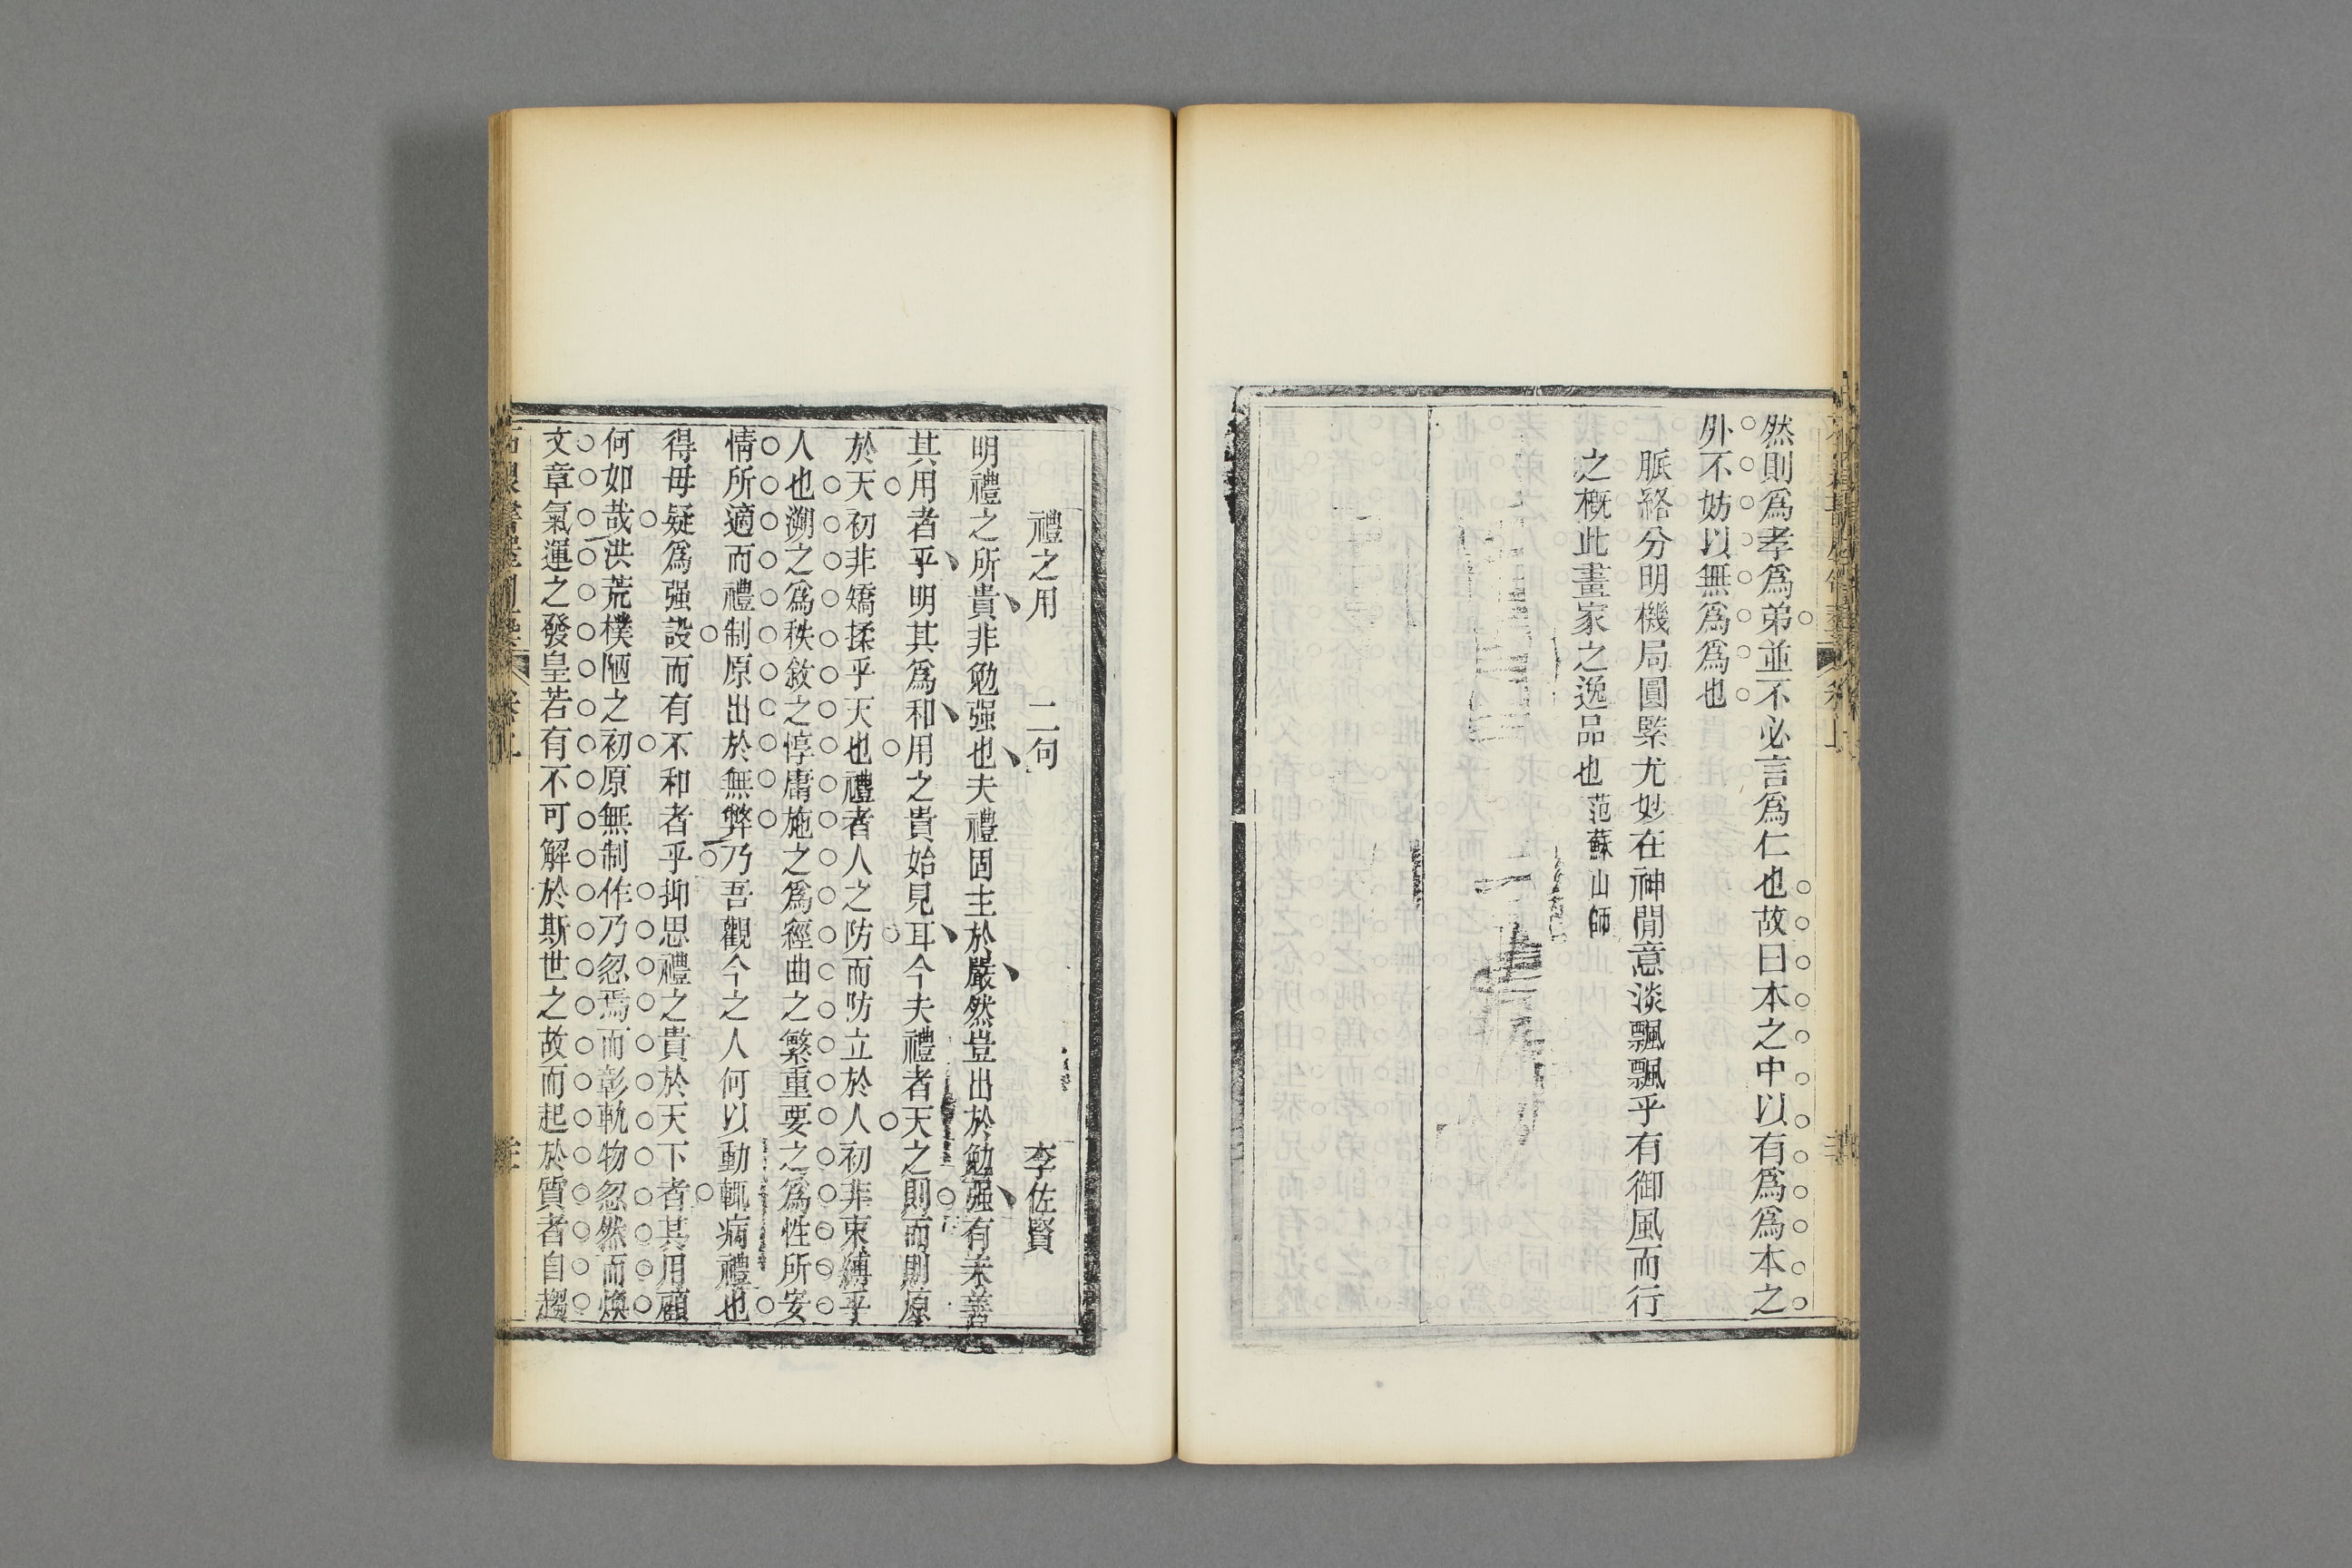 然則爲孝爲弟並不必言爲仁也故曰本之中以有爲爲本之
外不妨以無爲爲也
脈絡分明機局圓緊尤妙在神閒意淡飄飄乎有御風而行
之概此畫家之逸品也范蘇山師
禮之用 二句 李佐賢
明禮之所貴非勉强也夫禮固主於嚴然豈出於勉强有未善
其用者乎明其爲和用之貴始見耳今夫禮者天之則而則原
於天初非矯揉乎天也禮者人之防而防立於人初非束縛乎
人也溯之爲秩敘之惇庸施之爲經曲之繁重要之爲性所安
情所適而禮制原出於無弊乃吾觀今之人何以動輒病禮也
得毋疑爲强設而有不和者乎抑思禮之貴於天下者其用顧
何如哉洪荒樸陋之初原無制作乃忽焉而彰軌物忽然而煥
文章氣運之發皇若有不可解於斯世之故而起於質者自趨